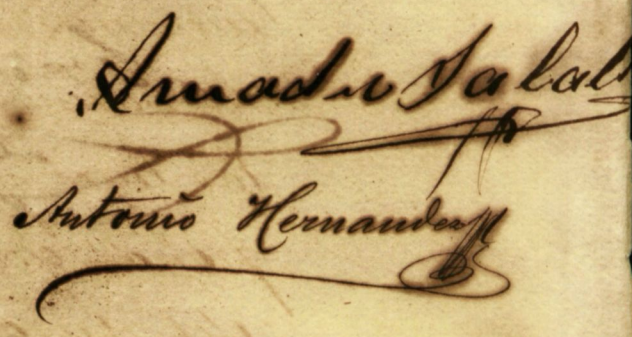 Amador Salab
Antonio Hernandez